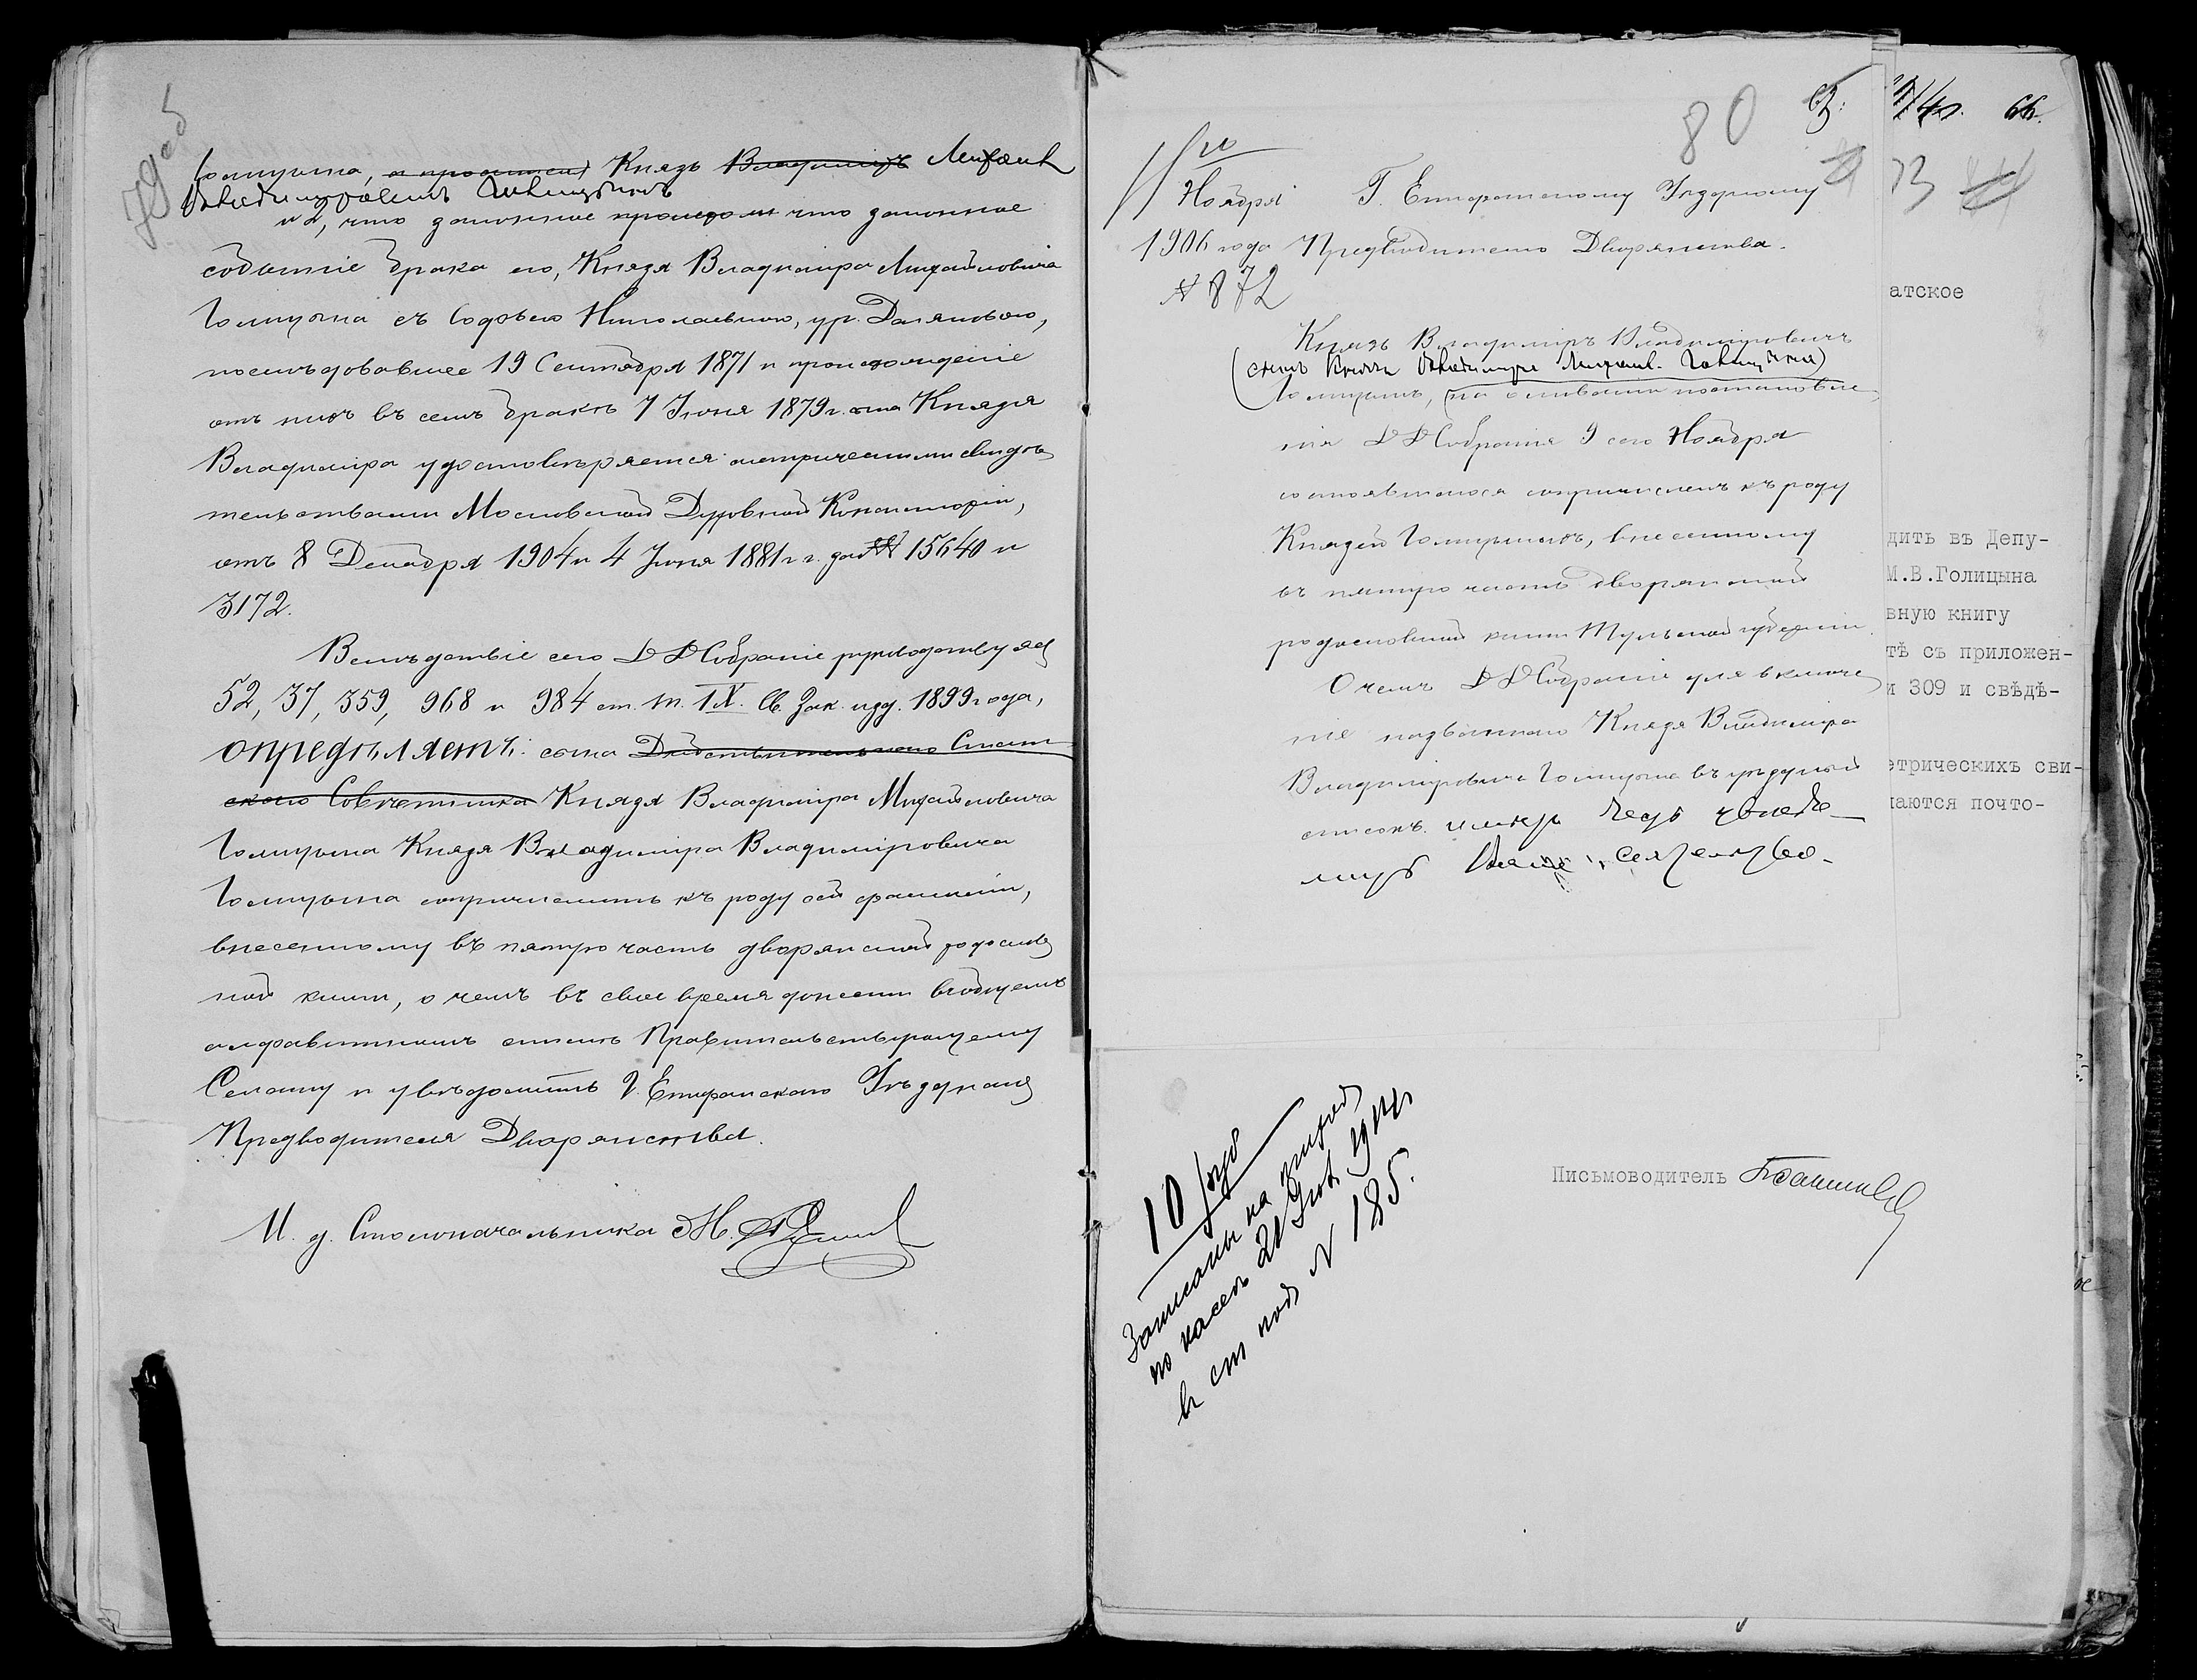 79 об
Голицына, а просителя Князь Владиміръ Михаил
Владиміровичъ Голицынъ
и 2, что законное происхожд что законное
событіе брака его, Князя Владиміра Михайловича
Голицына съ Софьею Николаевною, ур.
послѣдовавшее 19 Сентября 1871 и происхожденіе
отъ нихъ въ семъ бракѣ 7 Іюня 1879 г. сына Князя
Владиміра удостовѣряется метрическими свидѣ
тельствами Московской Духовной Консисторіи,
отъ 8 Декабря 1904 и 4 Іюня 1881 г.г. за №№ 15640 и
3172.
Вслѣдствіе сего ДДСобраніе руководствуясь
52, 37, 359, 968 и 984 ст. т. IX. Св. Зак. изд. 1899 года,
опредѣляетъ: сына Дѣйствительнаго Стат
скаго Совѣтника Князя Владиміра Михайловича
Голицына Князя Владиміра Владиміровича
Голицына сопричислить къ роду сей фамиліи,
внесенному въ пятую часть дворянской родослов
ной книги, о чемъ въ свое время донести въ общемъ
алфавитномъ спискѣ Правительствующему
Сенату и увѣдомить Г. Епифанскаго Уѣзднаго
Предводителя Дворянства.
И. д. Столоначальника М.
80
11/20
Ноября
1906 года
№ 872
Г. Епифанскому Уѣздному
Предводителю Дворянства.
Князь Владиміръ Владиміровичъ
(сынъ Князя Владиміра Михаил. Голицына)
Голицынъ, на основаніи постановле
нія ДДСобранія 9 сего Ноября
состоявшагося сопричисленъ къ роду
Князей Голицыныхъ, внесенному
въ пятую часть дворянской
родословной книги Тульской губерніи.
О чемъ ДДСобраніе для включе
нія названнаго Князя Владиміра
Владиміровича Голицына въ уѣздный
списокъ имѣетъ честь увѣдо
мить Ваше Сіятельство.
66.
73
атское
дить въ Депу-
М.В.Голицына
вную книгу
тѣ съ приложен-
и 309 и свѣдѣ-
этрическихъ сви-
лаются почто-
10 руб
Записаны на приходъ
по кассѣ 21
ст под № 185.
Письмоводитель